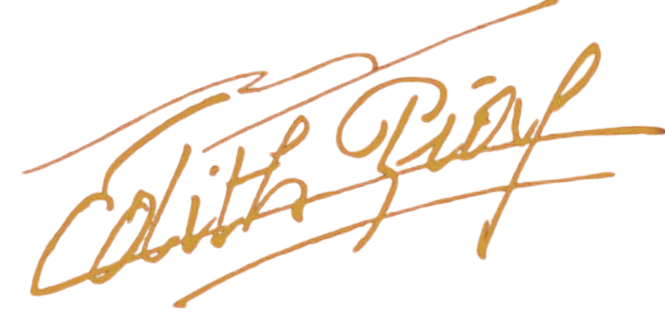 Edith Piaf